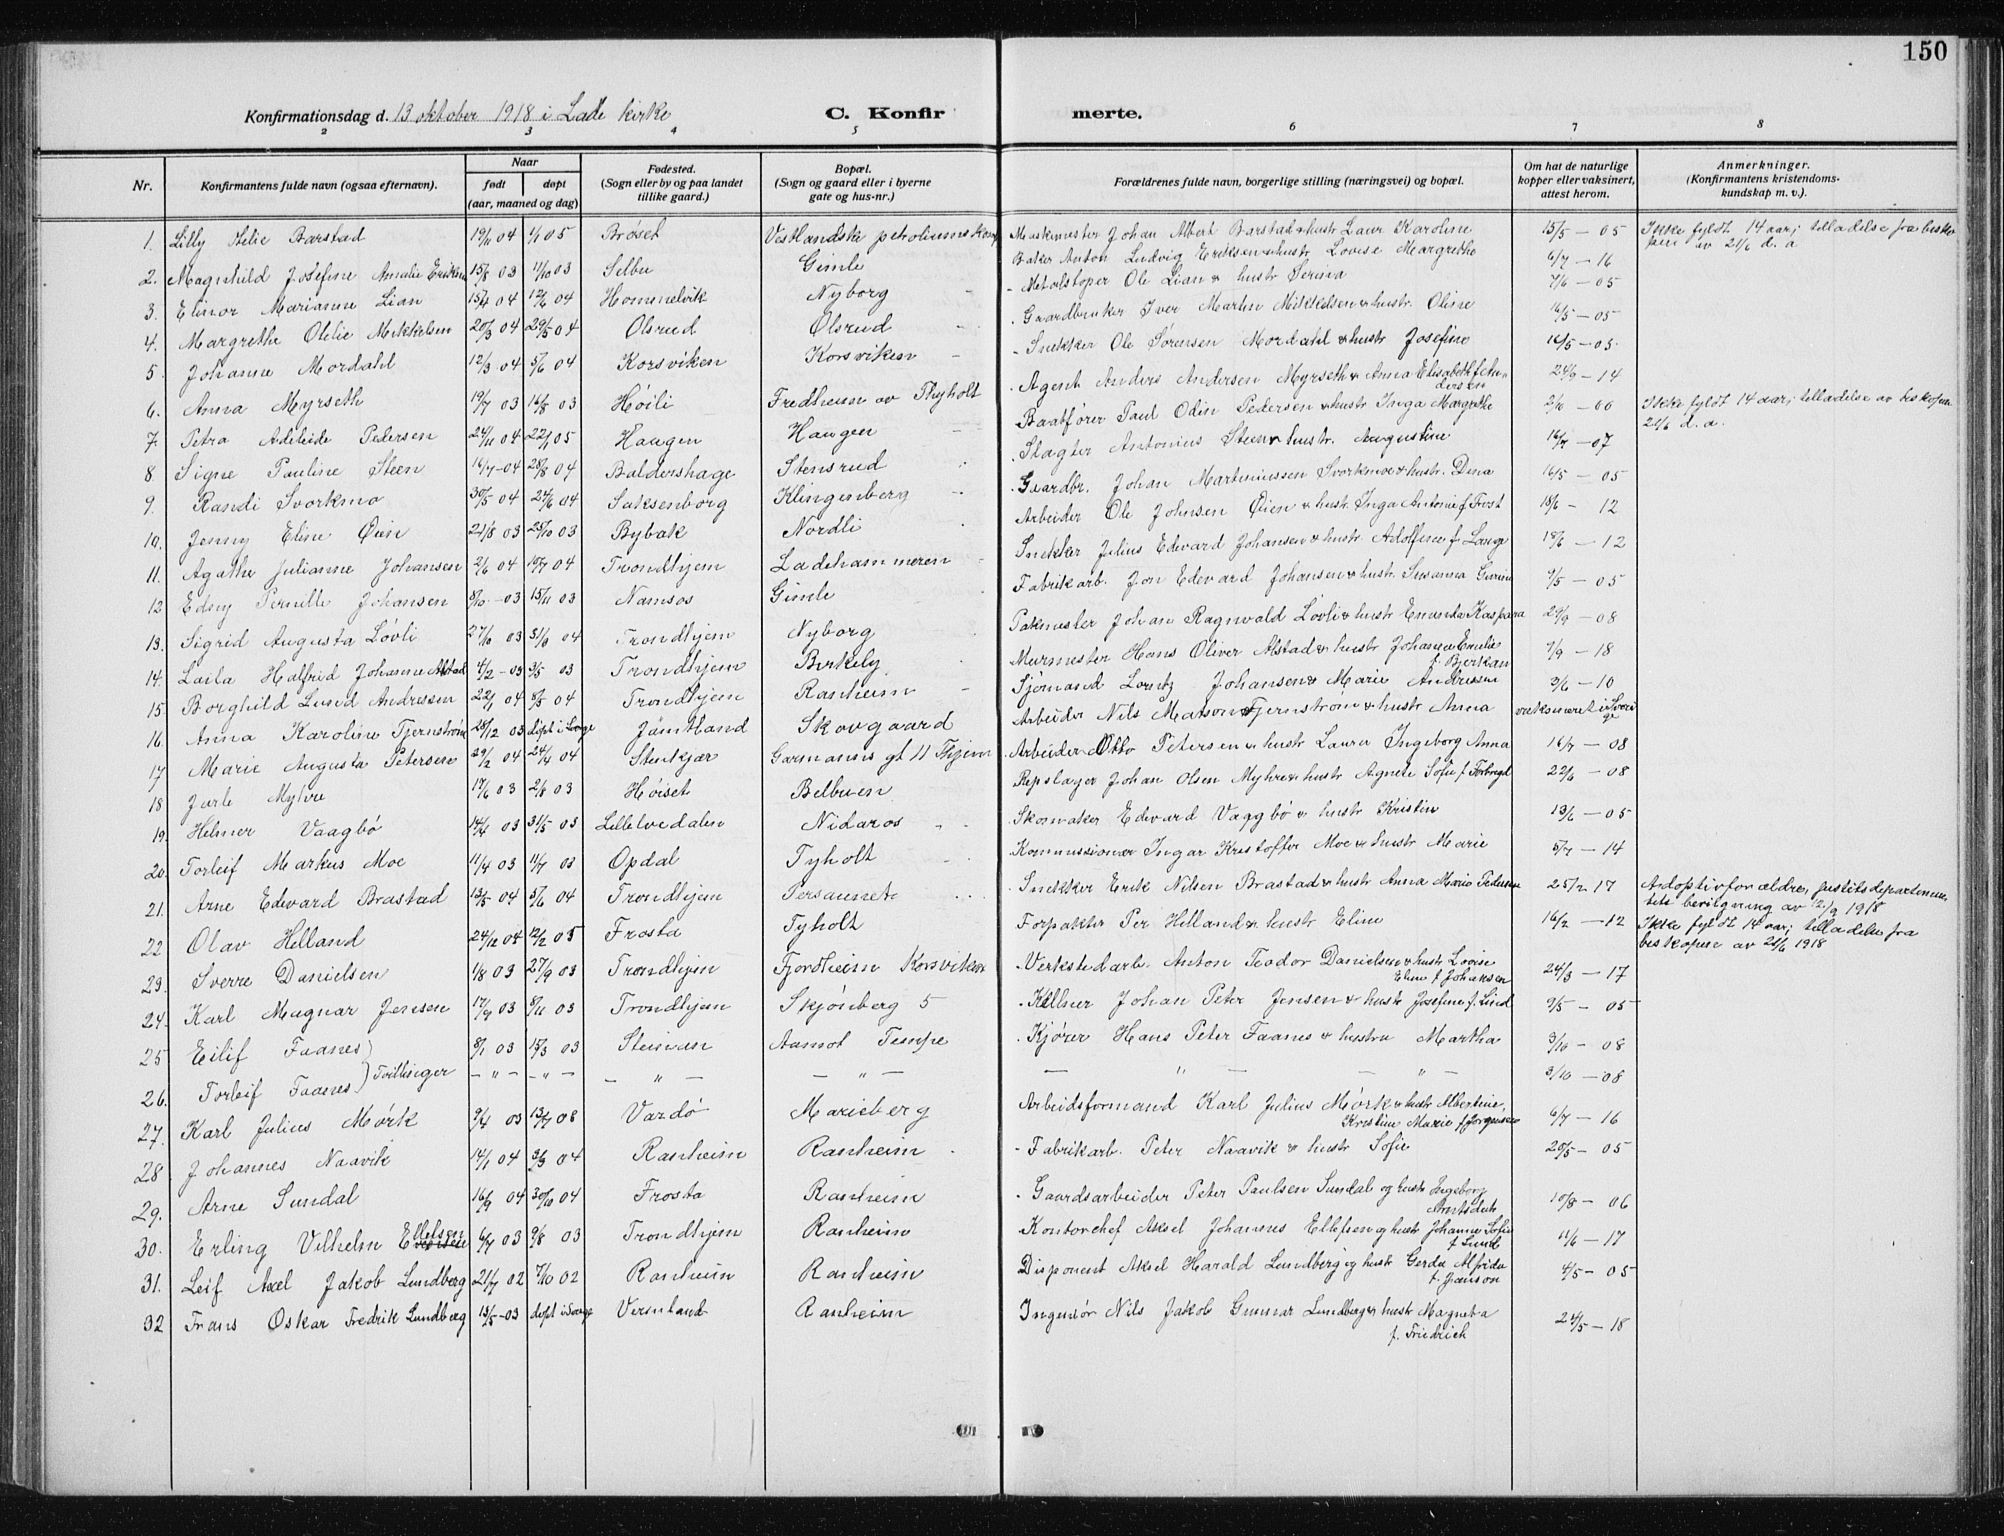 150
Konfirmationsdag d. 13 oktober 1918 i Lade kirke C. Konfirmerte.
2 3 4 5 6 7 8
Nr. Konfirmantens fulde navn (ogsaa efternavn). Naar født døpt (aar, maaned og dag) Fødested. (Sogn eller by og paa landet tillike gaard.) Bopæl. (Sogn og gaard eller i byerne gate og hus-nr.) Forældrenes fulde navn, borgerlige stilling (næringsvei) og bopæl. Om hat de naturlige kopper eller vaksinert, attest herom. Anmerkninger. (Konfirmantens kristendomskundskap m. v.).
1. Lilly Barstad 19/11 04 1/1 05 Brøset Vestlandske Maskinmester Johan Albert Barstad & hustr Laur Karoline 15/5 — 05 Ikke fyldt 14 aar; tilladelse fra biskopen av 21/6 d. a
2. Magnhild Josefine Amalie Eriksen 15/8 03 11/10 03 Selbu Gimle Baker Anton Ludvig Eriksen & hustr Lovise Margrethe 6/7 — 16
3. Elinor Marianne Lian 15/4 04 12/6 04 Hommelvik Nyborg Metalstøper Ole Lian & hustr Serina 7/6 — 05
4. Margrethe Otilie Mikkelsen 20/3 04 29/5 04 Olsrud Olsrud Gaardbruker Iver Martin Mikkelsen & hustr. Oline 16/5 — 05
5. Johanne Mordahl 12/3 04 5/6 04 Korsviken Korsviken Snekker Ole Sørensen Mordahl & hustr Josefine 16/5 — 05.
6. Anna Myrseth 19/7 03 16/8 03 Høili Fredheim av Thyholt Agent Anders Andersen Myrseth & Anna Elisabeth f. Andersen 24/9 — 14
7. Petra Adeleide Pedersen 24/11 04 22/1 05 Haugen Haugen Baatfører Paul Odin Pedersen & hustr Inga Margrethe 2/10 — 06 Ikke fyldt 14 aar; tilladelse av biskopen 21/6 d. a.
8 Signe Pauline Steen 16/7 — 04 28/8 04 Baldershage Stensrud Slagter Antonius Steen & hustr. Augustine 16/7 — 07
9. Randi Svorkmo 30/5 04 24/6 04 Saksenborg Klingenberg Gaardbr. Johan Martinussen Svorkmo & hustr. Dina 16/5 — 05
10. Jenny Eline Øien 21/8 03 25/10 03 Bybak Nordli Arbeider Ole Johnsen Øien & hustr Inga Antonie f Frost 18/6 — 12
11. Agathe Julianne Johansen 2/6 04 10/7 04 Trondhjem Ladehammeren Snekker Julius Edvard Johansen & hustr Adolfine f Lange 18/6 — 12
12 Edny Pernille Johansen 8/10 — 03 15/11 03 Namsos Gimle Fabrikarb. Jon Edevard Johansen & hustr. Susanna 9/5 — 05
13. Sigrid Augusta Løvli 27/10 03 31/1 04 Trondhjem Nyborg Pakmester Johan Ragnvald Løvli & hustr Emanda Kaspara 29/9 — 08
14. Laila Halfrid Johanne Alstad 4/2 — 03 3/5 03 Trondhjem Birkely Murmester Hans Oliver Alstad & hustr Johanna Emelie f. Bjerkan 7/9 — 18
15. Borghild Lund Andressen 22/1 04 8/5 04 Trondhjem Ranheim Sjømand Lorntz Johansen & Marie Andressen 3/6 — 10
16. Anna Karoline Tjernstrøm 28/12 03 døpt i Sverge Jämtland Skovgaard Arbeider Nils Matson Tjernstrøm & hustr Anna
17 Marie Augusta Petersen 29/2 04 24/4 04 Stenkjær Garmanns gt 11 Thjem Arbeider Otto Petersen & hustr Laura Ingeborg Anna 16/7 — 08
18 Jarle Myhre 17/6 03 2/8 03 Høiset Belbuen Repslager Johan Olsen Myhre & hustr Agnete Sofie f. Forbregd 22/6 — 08
19. Helmer Vaagbø 14/4 03 31/5 03 Lillelvedalen Nidaros Skomaker Edvard Vaagbø & hustr Kristin 13/6 — 05
20. Torleif Markus Moe 11/4 03 11/7 03 Opdal Tyholt Kommissionær Ingar Kristoffer Moe & hustr Marie 5/7 — 14
21. Arne Edvard Brastad 13/5 04 5/6 04 Trondhjem Persaunet Snekker Erik Nilsen Brastad & hustr Anna Marie Pedersen 25/2 17 Adoptivforældre, justitsdepartementets bevilgning av 12/9 1918
22 Olav Helland 24/12 04 12/2 05 Frosta Tyholt Forpakter Per Helland & hustr Eline 16/2 — 12 Ikke fyldt 14 aar; tilladelse fra biskopen av 21/6 1918
23. Sverre Danielsen 1/8 03 27/9 03 Trondhjem Fjordheim Korsviken Verkstedarb. Anton Teodor Danielsen & hustr Lovise Eline f Johansen 24/3 — 17
24. Karl Magnar Jensen 17/9 03 8/11 03 Trondhjem Skjønberg 5 Kellner Johan Peter Jensen & hustr Josefine f. Lind 9/5 — 05
25 Eilif Faanes 8/1 03 15/3 03 Steinan Aamot Tempe Kjører Hans Peter Faanes & hustru Martha 3/10 — 08
26. Torleif Faanes } Tvillinger — " — — " — — " — — " — — " — " — 3/10 — 08
27. Karl Julius Mørk 9/4 03 13/7 08 Vardø Marieberg Arbeidsformand Karl Julius Mørk & hustr Albertine, Kristine Marie f Jørgensen 6/7 — 16
28. Johannes Naavik 14/1 04 3/3 04 Ranheim Ranheim Fabrikarb. Peter Naavik & hustr Sofie 20/5 — 05
29. Arne Sundal 16/9 04 30/10 04 Frosta Ranheim Gaardsarbeider Peter Paulsen Sundal og hustr Ingeborg Arntsdatr 10/8 — 06
30. Erling Vilhelm Ellefsen 6/7 03 9/8 03 Trondhjem Ranheim Kontorchef Aksel Johannes Ellefsen og hustr Johanne Sofie f Lund 11/6 — 17
31. Leif Axel Jakob Lundberg 21/7 02 7/10 02 Ranheim Ranheim Disponent Aksel Harald Lundberg og hustr Gerda Alfrida f. Jranson 4/5 — 05
32 Frans Oskar Fredrik Lundberg 13/5 — 03 døpt i Sverge Vermland Ranheim Ingeniør Nils Jakob Gunnar Lundberg & hustr Magneta f. Friedrich 24/5 — 18